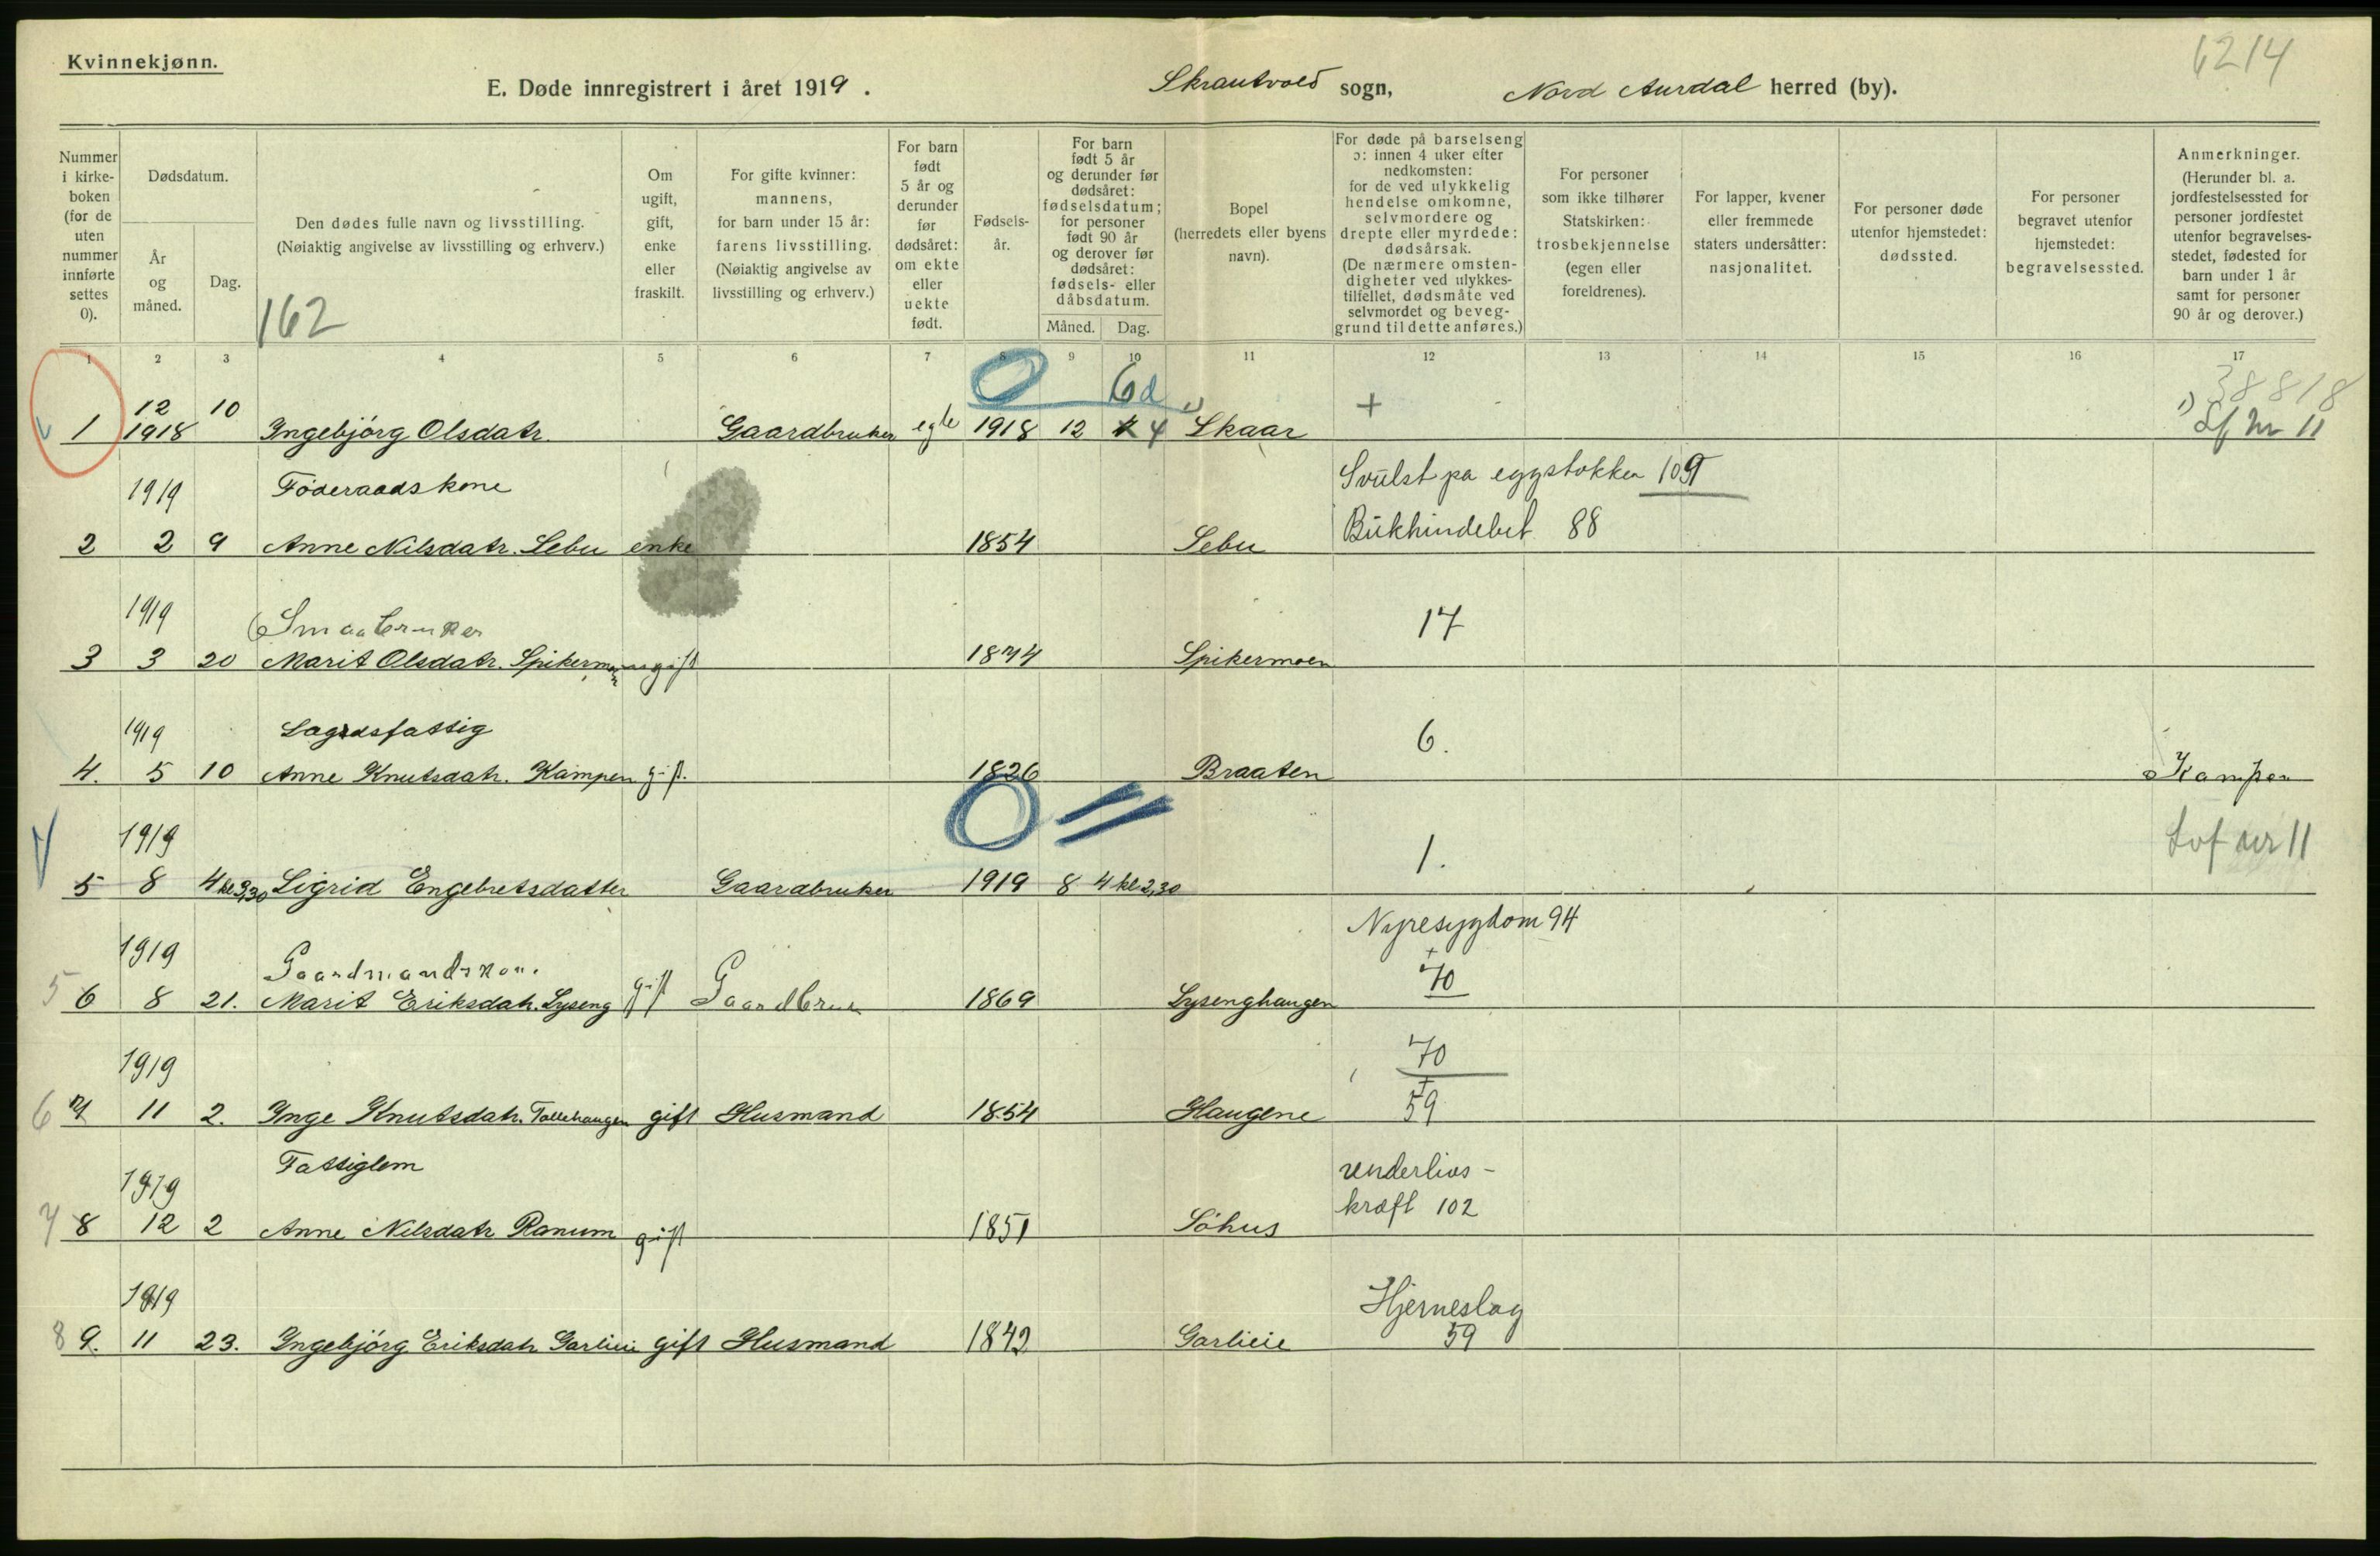 6214
Kvinnekjønn.
E. Døde innregistrert i året 1919. Skrautvold sogn, Nord Aurdal herred (by).
Nummer i kirkeboken (for de uten nummer innførte settes 0).
Dødsdatum.
År og måned.
Dag.
Den dødes fulle navn og livsstilling.
(Nøiaktig angivelse av livsstilling og erhverv.)
162
Om ugift, gift, enke eller fraskilt.
For gifte kvinner: mannens, for barn under 15 år: farens livsstilling. (Nøiaktig angivelse av livsstilling og erhverv.)
For barn født 5 år og derunder før dødsåret: om ekte eller uekte født.
Fødsels-år.
For barn født 5 år og derunder før dødsåret: fødselsdatum; for personer født 90 år og derover før dødsåret: fødsels- eller dåbsdatum.
Måned. Dag.
Bopel (herredets eller byens navn).
For døde på barselseng ɔ: innen 4 uker efter nedkomsten: for de ved ulykkelig hendelse omkomne, selvmordere og drepte eller myrdede: dødsårsak. (De nærmere omstendigheter ved ulykkestilfellet, dødsmåte ved selvmordet og beveggrund til dette anføres.)
For personer som ikke tilhører Statskirken: trosbekjennelse (egen eller foreldrenes).
For lapper, kvener eller fremmede staters undersåtter: nasjonalitet.
For personer døde utenfor hjemstedet: dødssted.
For personer begravet utenfor hjemstedet: begravelsessted.
Anmerkninger. (Herunder bl. a. jordfestelsessted for personer jordfestet utenfor begravelsesstedet, fødested for barn under 1 år samt for personer 90 år og derover.)
1 2 3 4 5 6 7 8 9 10 11 12 13 14 15 16 17
0 6d 38818
12 10 + 1)
1 1918 Ingebjörg Olsdatr. Gaardbruker egte 1918 12 4 1) Skaar Lf nr 11
1919 Föderaadskone Svulst pa eggstokken 109
2 2 9 Anne Nilsdatr. Sebu enke 1854 Sebu Bukhindebet 88
1919 Smaabruker 17
3 3 20 Marit Olsdatr. Spikermoen gift 1874 Spikermoen
1919 Lægdsfattig 6.
4. 5 10 Anne Knutsdatr. Kampen gift. 1826 Braaten Kampen
0 =
1919 1. Lvf nr 11
5 8 4 kl 3,30 Sigrid Engebretsdatter Gaardbruker 1919 8 4 kl 2,30
Nyresygdom 94
1919 Gaardmandskone + 70
5 6 8 21. Marit Eriksdatr. Lyseng gift Gaardbruk 1869 Lysenghaugen
1919 70 +
6 7 11 2. Inge Knutsdatr. Tollehaugen gift Husmand 1854 Haugene 59
1919 Fattiglem underlivs-
kræft 102
7 8 12 2 Anne Nilsdatr Ranum gift 1851 Söhus
1919 Hjerneslag
8 9. 11 23. Ingebjörg Eriksdatr Garlieie gift Husmand 1842 Garlieie 59